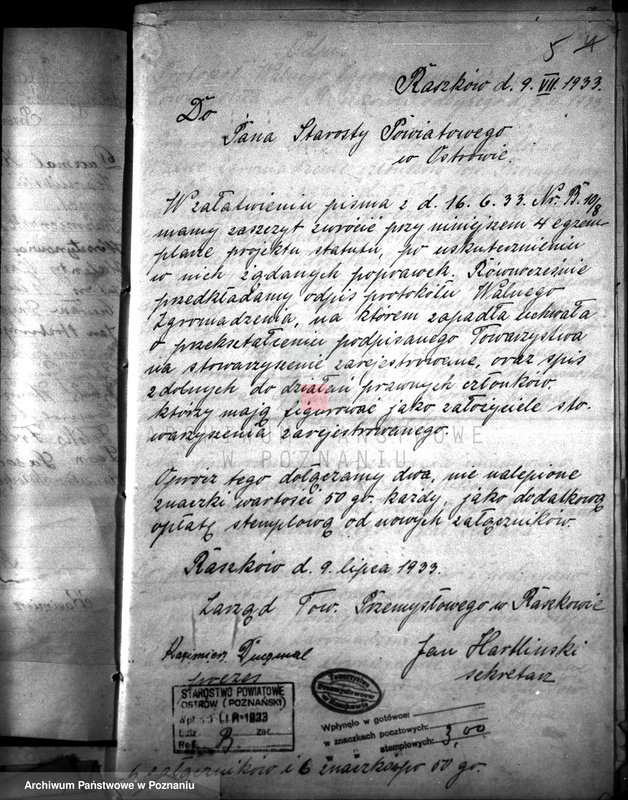 5 4
Raszków d. 9. VII. 1933.
Do
Pana Starosty Powiatowego
w Ostrowie.
W załatwieniu pisma z d. 16. 6. 33. Nr. B. 10/8
mamy zaszczyt zwrócić przy niniejszem 4 egzem-
plarze projektu statutu, po uskutecznieniu
w nich żądanych poprawek. Równocześnie
przedkładamy odpis protokółu Walnego
Zgromadzenia, na którem zapadła uchwała
o przekształceniu podpisanego Towarzystwa
na stowarzyszenie zarejestrowane, oraz spis
zdolnych do działań prawnych członków,
którzy mają figurować jako założyciele sto-
warzyszenia zarejestrowanego.
W POZNANIU
Oprócz tego dołączamy dwa, nie nalepione
znaczki wartości 50 gr. każdy, jako dodatkową
opłatę stemplową od nowych załączników.
Raszków d. 9. lipca 1933.
Zarząd Tow. Przemysłowego w Raszkowie
Kazimierz
Jan Hartliński
prezes
sekretarz
STAROSTWO POWIATOWE
OSTRÓW (POZNAŃSKI)
Wpł. 1933
L.dz. zał.
Ref. B.
Towarzystwo
Przemysłowe
w Raszkowie
Wpłynęło w gotówce:
w znaczkach pocztowych:
" " stemplowych: 3,00
6 załączników i 6 znaczków po 50 gr.
Archiwum Państwowe w Poznaniu